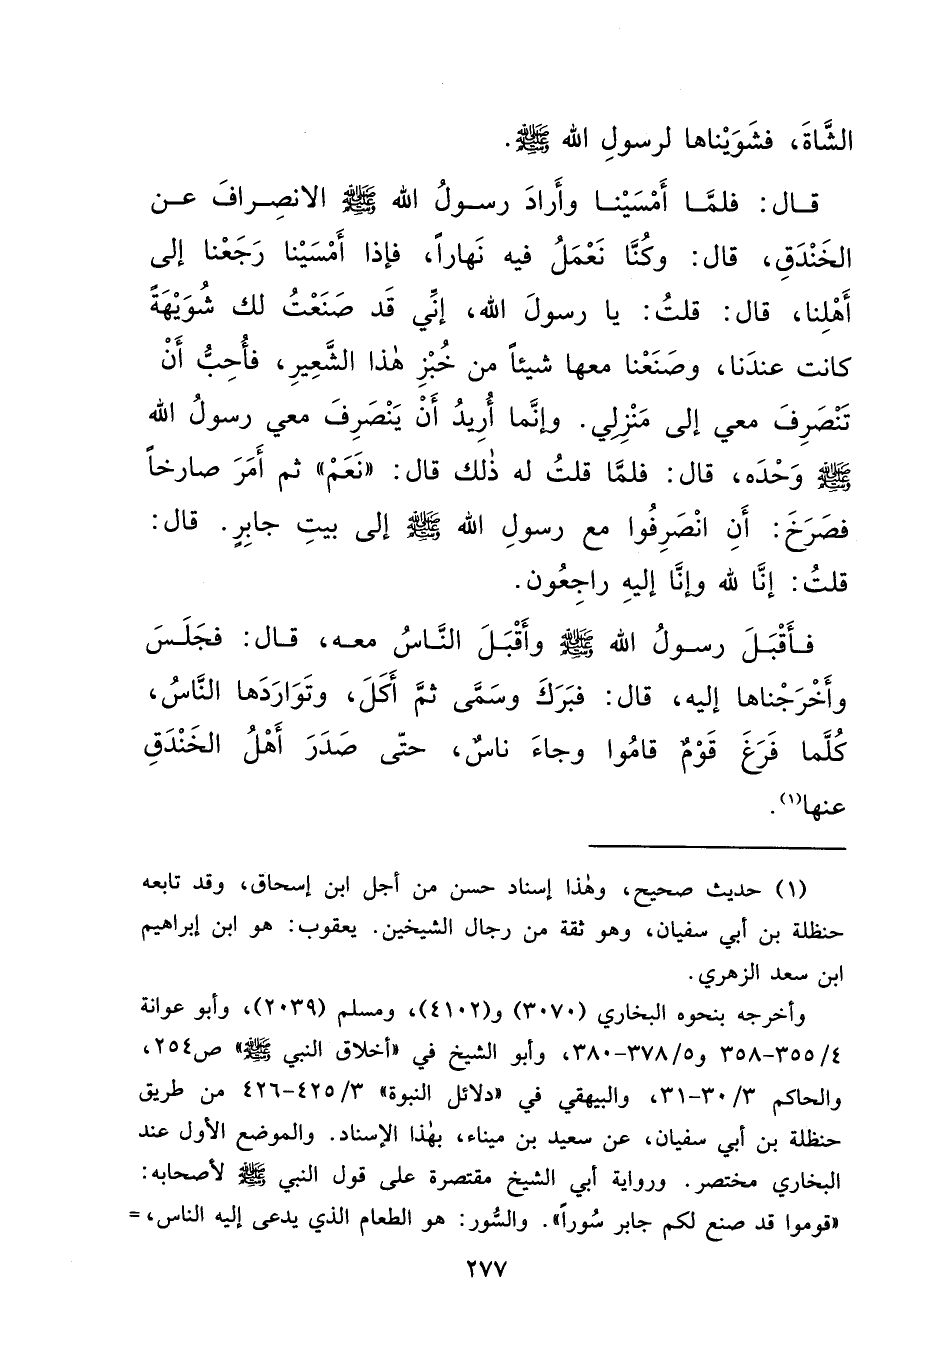 الشَّاةَ، فشَوَيْناها لرسولِ الله ﷺ.
قـال: فلمَّـا أَمْسَيْنـا وأَرادَ رسـولُ الله ﷺ الانصِـرافَ عـن
الخَنْدَقِ، قال: وكُنَّا نَعْمَلُ فيه نَهاراً، فإذا أَمْسَيْنا رَجَعْنا إلى
أَهْلِنا، قال: قلتُ: يا رسولَ الله، إنِّي قَد صَنَعْتُ لك شُوَيْهَةً
كانت عندَنا، وصَنَعْنا معها شيئاً من خُبْزِ هٰذا الشَّعِيرِ، فأُحِبُّ أَنْ
تَنْصَرِفَ معي إلى مَنْزِلِي. وإنَّما أُرِيدُ أَنْ يَنْصَرِفَ معي رسولُ الله
ﷺ وَحْدَه، قال: فلمَّا قلتُ له ذٰلك قال: «نَعَمْ» ثم أَمَرَ صارخاً
فصَرَخَ: أَنِ انْصَرِفُوا مع رسولِ الله ﷺ إلى بيتِ جابِرٍ. قال:
قلتُ: إنَّا لله وإنَّا إليهِ راجِعُون.
فـأَقْبَـلَ رسـولُ الله ﷺ وأَقْبَـلَ النَّـاسُ معـه، قـال: فجَلَـسَ
وأَخْرَجْناها إليه، قال: فبَرَكَ وسَمَّى ثمَّ أَكَلَ، وتَوَارَدَها النَّاسُ،
كُلَّما فَرَغَ قَوْمٌ قامُوا وجاءَ ناسٌ، حتّى صَدَرَ أَهْلُ الخَنْدَقِ
عنها(١).
(١) حديث صحيح، وهٰذا إسناد حسن من أجل ابن إسحاق، وقد تابعه
حنظلة بن أبي سفيان، وهو ثقة من رجال الشيخين. يعقوب: هو ابن إبراهيم
ابن سعد الزهري.
وأخرجه بنحوه البخاري (٣٠٧٠) و(٤١٠٢)، ومسلم (٢٠٣٩)، وأبو عوانة
٤/ ٣٥٥-٣٥٨ و٥/ ٣٧٨-٣٨٠، وأبو الشيخ في «أخلاق النبي ﷺ» ص٢٥٤،
والحاكم ٣/ ٣٠-٣١، والبيهقي في «دلائل النبوة» ٣/ ٤٢٥-٤٢٦ من طريق
حنظلة بن أبي سفيان، عن سعيد بن ميناء، بهٰذا الإسناد. والموضع الأول عند
البخاري مختصر. ورواية أبي الشيخ مقتصرة على قول النبي ﷺ لأصحابه:
«قوموا قد صنع لكم جابر سُوراً». والسُّور: هو الطعام الذي يدعى إليه الناس، =
٢٧٧